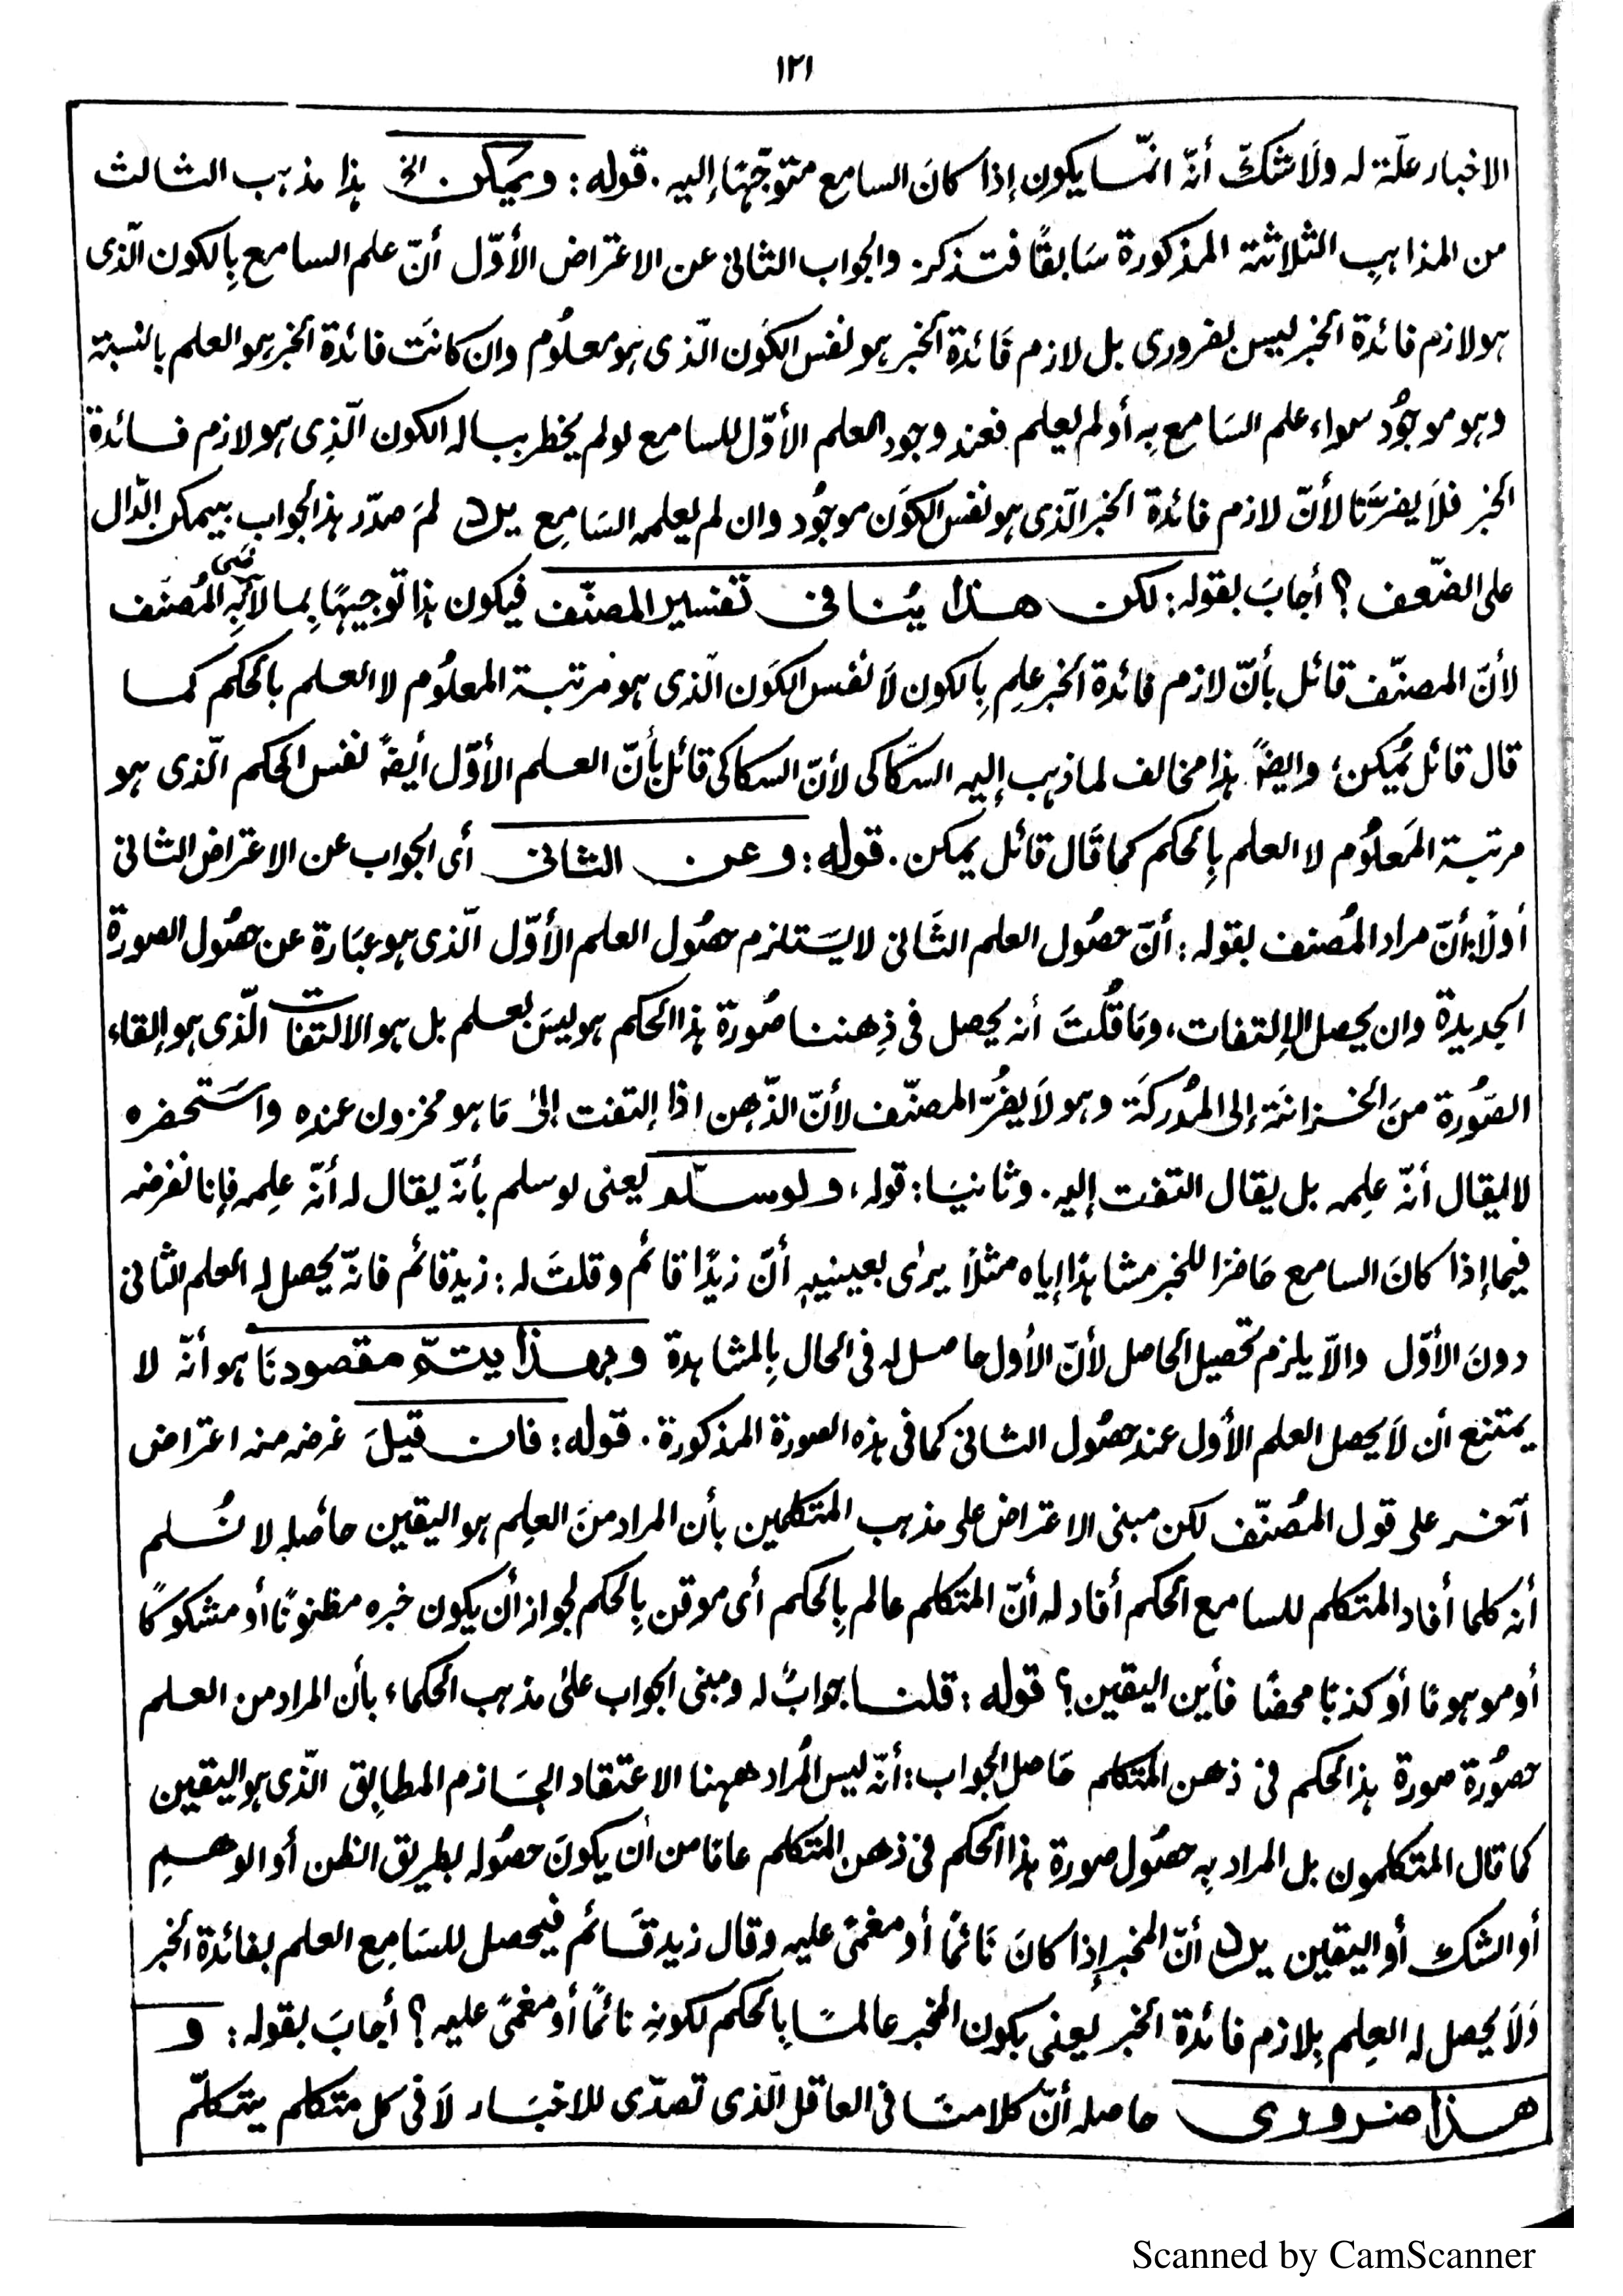 ١٢١
الاخبار علّة له ولا شكّ أنّه انمّا يكون إذا كانَ السامع متوجّهًا إليه . قوله : ويمكن الخ هذا مذهب الثالث
من المذاهبِ الثلاثة المذكورة سَابقًا فتذكر . والجواب الثانى عن الاعتراض الأوّل أنّ علم السامع بِالكون الّذى
هو لازم فائدة الخبر ليس بضرورى بل لازم فَائدة الخبر هو نفس الكَون الّذى هو معلُوم وان كانَت فائدة الخبر هو العلم بالنسبة
وهو موجُود سواء علم السَامع بِه أو لم يعلم فعند وجود العلم الأوّل للسامع لو لم يخطر بباله الكون الّذِى هو لازم فائدة
الخبر فلَا يضرّنا لأنّ لازم فائدة الخبر الّذى هو نفس الكَون موجُود وان لم يعلمه السَامِع يرد لمَ صدّر هذ الجواب بيمكن الدّال
على الضّعف ؟ أجابَ بقوله : لكن هذا يُنافى تفسير المصنّف فيكون هٰذا توجيهًا بِما لا يَرضى بِه المُصنّف
لأنّ المصنّف قائل بأنّ لازم فائدة الخبر علِم بِالكون لَا نفس الكَون الّذى هو مرتبة المعلُوم لا العلم بالحكم كما
قال قائل يُمكن ، وايضاً هٰذا مخالف لما ذهب إليه السكّاكى لأنّ السكاكى قائل بأنّ العلم الأوّل أيضاً نفس الحكم الّذى هو
مرتبة المَعلُوم لا العلم بِالحكم كما قَال قائل يمكن . قوله : وعن الثانى أى الجواب عن الاعتراض الثانى
أوّلًا بأنّ مراد المُصنف بقوله : أنّ حصُول العلم الثَانى لا يَستلزم حصُول العلم الأوّل الّذى هو عبَارة عن حصُول الصورة
الجديدة وان يحصل الإلتفات ، ومَا قُلتَ أنه يحصل فى ذِهننا صُورة هٰذا الحكم هو ليسَ بعلم بل هو الالتفات الّذى هو إلقاء
الصّورة منَ الخزانَة إلى المُدركَة وهو لَا يضُرّ المصنّف لأنّ الذّهن اذا إلتفت إلىٰ مَا هو مخزون عندِه واستَحضره
لا يقال أنّه علِمه بل يقال التفت إليه . وثانيَا : قوله ، ولو سلّم يعنى لو سلم بأنّه يقال له أنّه علِمه فإنا نفرضه
فيما إذا كانَ السامع حَاضرًا للخبر مشاهدًا إياه مثلًا يرىٰ بعينيهِ أنّ زيدًا قائم وقلتَ له : زيد قائم فانّه يحصل له العلم الثانى
دونَ الأوّل والّا يلزم تحصيل الحاصل لأنّ الأول حاصل له فى الحال بِالمشاهدة وبهذا يتمّ مقصودنَا هو أنّه لا
يمتنع أن لَا يحصل العلم الأول عند حصُول الثانى كما فى هذه الصورة المذكورة . قوله : فان قيلَ غرضه منه اعتراض
آخر على قول المُصنّف لكن مبنى الاعتراض على مذهب المتكلمين بأن المراد منَ العِلم هو اليقين حاصله لا نُسلم
أنه كلما أفاد المتكلم للسامع الحكم أفاد له أنّ المتكلم عالم بِالحكم أى موقن بِالحكم لجواز أن يكون خبره مظنونًا أو مشكوكًا
أو موهومًا أو كذبًا محضًا فأين اليقين ؟ قوله : قلنا جوابٌ له ومبنى الجواب علىٰ مذهب الحكماء بأن المراد من العلم
حصُورة صورة هذ الحكم فى ذهن المتكلم حَاصل الجواب : أنّه ليس المُراد ههنا الاعتقاد الجَازم المطابِق الّذى هو اليقين
كما قال المتكلمون بل المراد بِه حصُول صورة هٰذا الحكم فى ذهن المتكلم عامًا من أن يكونَ حصُوله بطريق الظن أو الوهمِ
أو الشك أو اليقين يرد أنّ المخبر إذا كانَ نَائمًا أو مغمىً عليه وقال زيد قَائم فيحصل للسَامِع العلم بفائدة الخبر
وَلَا يحصل له العِلم بِلازم فائدة الخبر يعنى بكون المخبر عالمًا بِالحكم لكونِه نائمًا أو مغمىً عليه ؟ أجابَ بقوله : و
هذا ضرورى حاصله أنّ كلامنَا فى العاقل الّذى تصدّى للاخبَار لَا فى كل متكلم يتكلّم
Scanned by CamScanner